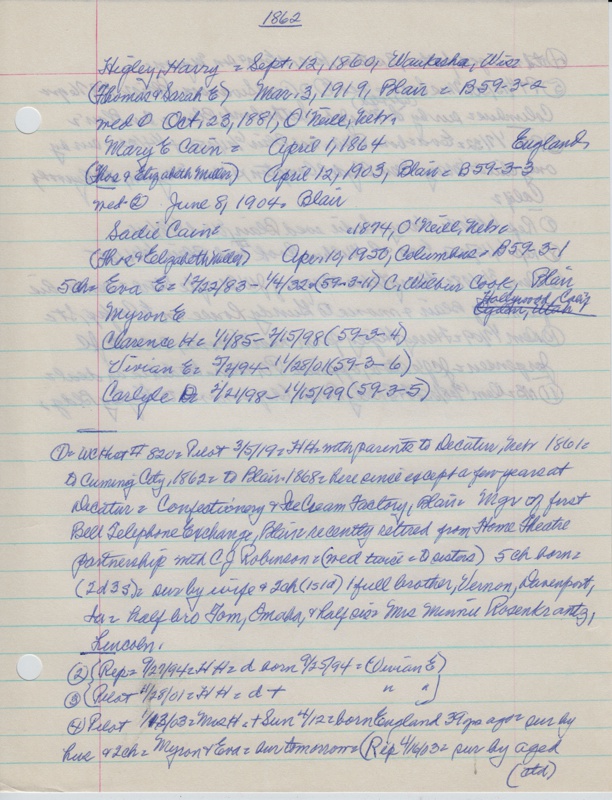 1862
Higley, Harry = Sept. 12, 1860, Waukesha, Wisc
(Thomas & Sarah E) Mar. 3, 1919, Blair = B59-3-2
med ① Oct. 23, 1881, O'Neill, Nebr.
Mary E Cain = April 1, 1864 England,
(Thos & Elizabeth Miller) April 12, 1903, Blair = B59-3-3
med ② June 8, 1904 = Blair
Sadie Cain = 1874, O'Neill, Nebr =
(Thos & Elizabeth Miller) Apr. 10, 1950, Columbus = B59-3-1
5 ch = Eva E = 12/22/83 - 1/4/32 = (59-3-11) C, Wilbur Cook, Blair
Myron E Hollywood, Calif
Ogden, Utah
Clarence H = 1/1/85 - 2/15/98 (59-3-4)
Vivian E = 9/2/94 - 11/28/01 (59-3-6)
Carlyle D 2/21/98 - 11/15/99 (59-3-5)
① = WCHist # 820 = Pilot 3/5/19 = HH = with parents to Decatur, Nebr 1861 =
to Cuming City, 1862 = to Blair 1868 = here since except a few years at
Decatur = Confectionery & Ice Cream Factory, Blair = Mgr of first
Bell Telephone Exchange, Blair = recently retired from Home Theatre
partnership with C J Robinson = (med twice = ② sisters) 5 ch born =
(2 d 3 s) = sur by wife & 2 ch (1 s 1 d) 1 full brother, Vernon, Davenport,
Ia = half bro Tom, Omaha, & half sis = Mrs Minnie Rosenkrantz,
Lincoln.
② {Rep = 9/27/94 = HH = d born 9/25/94 = (Vivian E)
③ {Pilot 11/28/01 = HH = d + " "
④ Pilot 1/13/03 = Mrs H = + Sun 4/12 = born England 39 yrs ago = sur by
hus & 2 ch = Myron & Eva = sur tomorrow = (Rep 4/16/03 = sur by aged